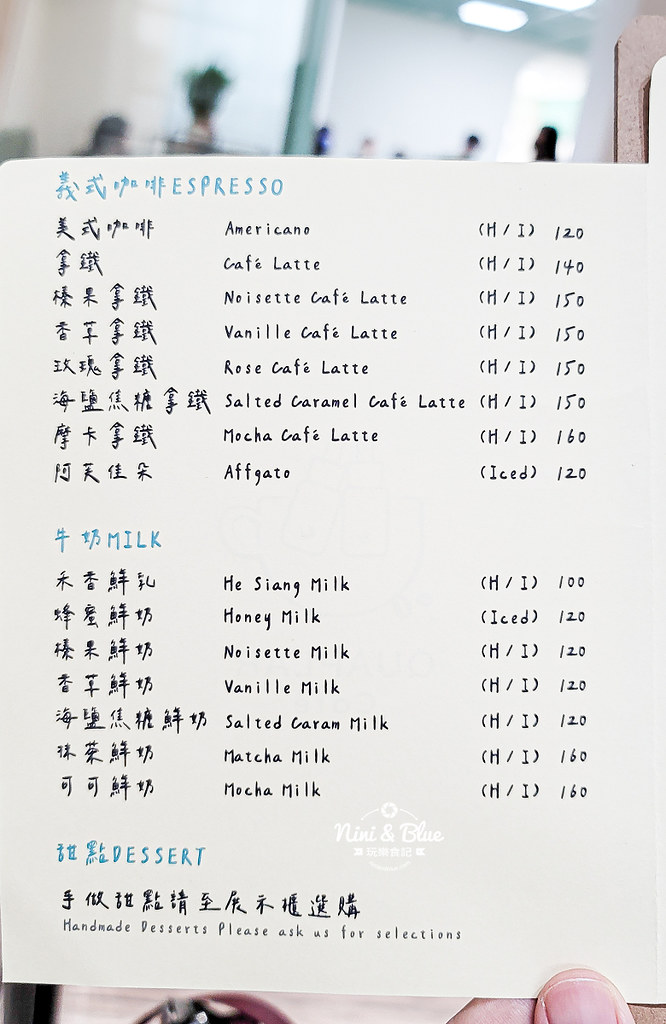 義式咖啡ESPRESSO
美式咖啡 Americano (H / I) 120
拿鐵 Café Latte (H / I) 140
榛果拿鐵 Noisette Café Latte (H / I) 150
香草拿鐵 Vanille Café Latte (H / I) 150
玫瑰拿鐵 Rose Café Latte (H / I) 150
海鹽焦糖拿鐵 Salted Caramel Café Latte (H / I) 150
摩卡拿鐵 Mocha Café Latte (H / I) 160
阿芙佳朵 Affgato (Iced) 120
牛奶MILK
禾香鮮乳 He Siang Milk (H / I) 100
蜂蜜鮮奶 Honey Milk (Iced) 120
榛果鮮奶 Noisette Milk (H / I) 120
香草鮮奶 Vanille Milk (H / I) 120
海鹽焦糖鮮奶 Salted Caram Milk (H / I) 120
抹茶鮮奶 Matcha Milk (H / I) 160
可可鮮奶 Mocha Milk (H / I) 160
Nini & Blue
玩樂食記
甜點DESSERT
手做甜點請至展示櫃選購
Handmade Desserts Please ask us for selections